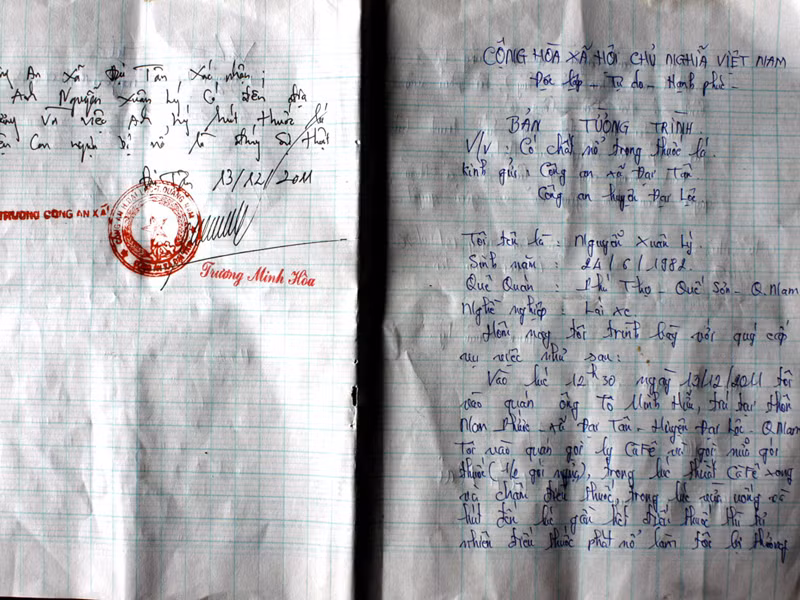 An xã Đại Tân xác nhận;
Anh Nguyễn Xuân Lý có đến
và việc anh Lý hút thuốc lá
bị nổ là đúng sự thật
Đại Tân 13/12/2011
TRƯỞNG CÔNG AN XÃ
Trương Minh Hòa
CỘNG HÒA XÃ HỘI CHỦ NGHĨA VIỆT NAM
Độc lập - Tự do - Hạnh phúc -
BẢN TƯỜNG TRÌNH.
V/v : Có chất nổ trong thuốc lá.
Kính gửi: Công an xã Đại Tân
Công an huyện Đại Lộc.
Tôi tên là : Nguyễn Xuân Lý.
Sinh năm : 24/6/1982.
Quê Quán : Phú Thọ - Quế Sơn - Q.Nam
Nghề nghiệp : Lái xe
Hôm nay tôi trình bày với quý cấp
vụ việc như sau:
Vào lúc 12h30 ngày 13/12/2011 tôi
vào quán ông Tô Minh Hữu, trú tại thôn
Nam Phước - xã Đại Tân - Huyện Đại Lộc - Q.Nam
Tôi vào quán gọi ly Cafê và gọi nửa gói
thuốc ( gói ngựa), trong lúc Cafê xong
và châm điếu thuốc, trong lúc vừa uống và
hút đến lúc gần hết điếu thuốc thì tự
nhiên điếu thuốc phát nổ làm tôi bị thương